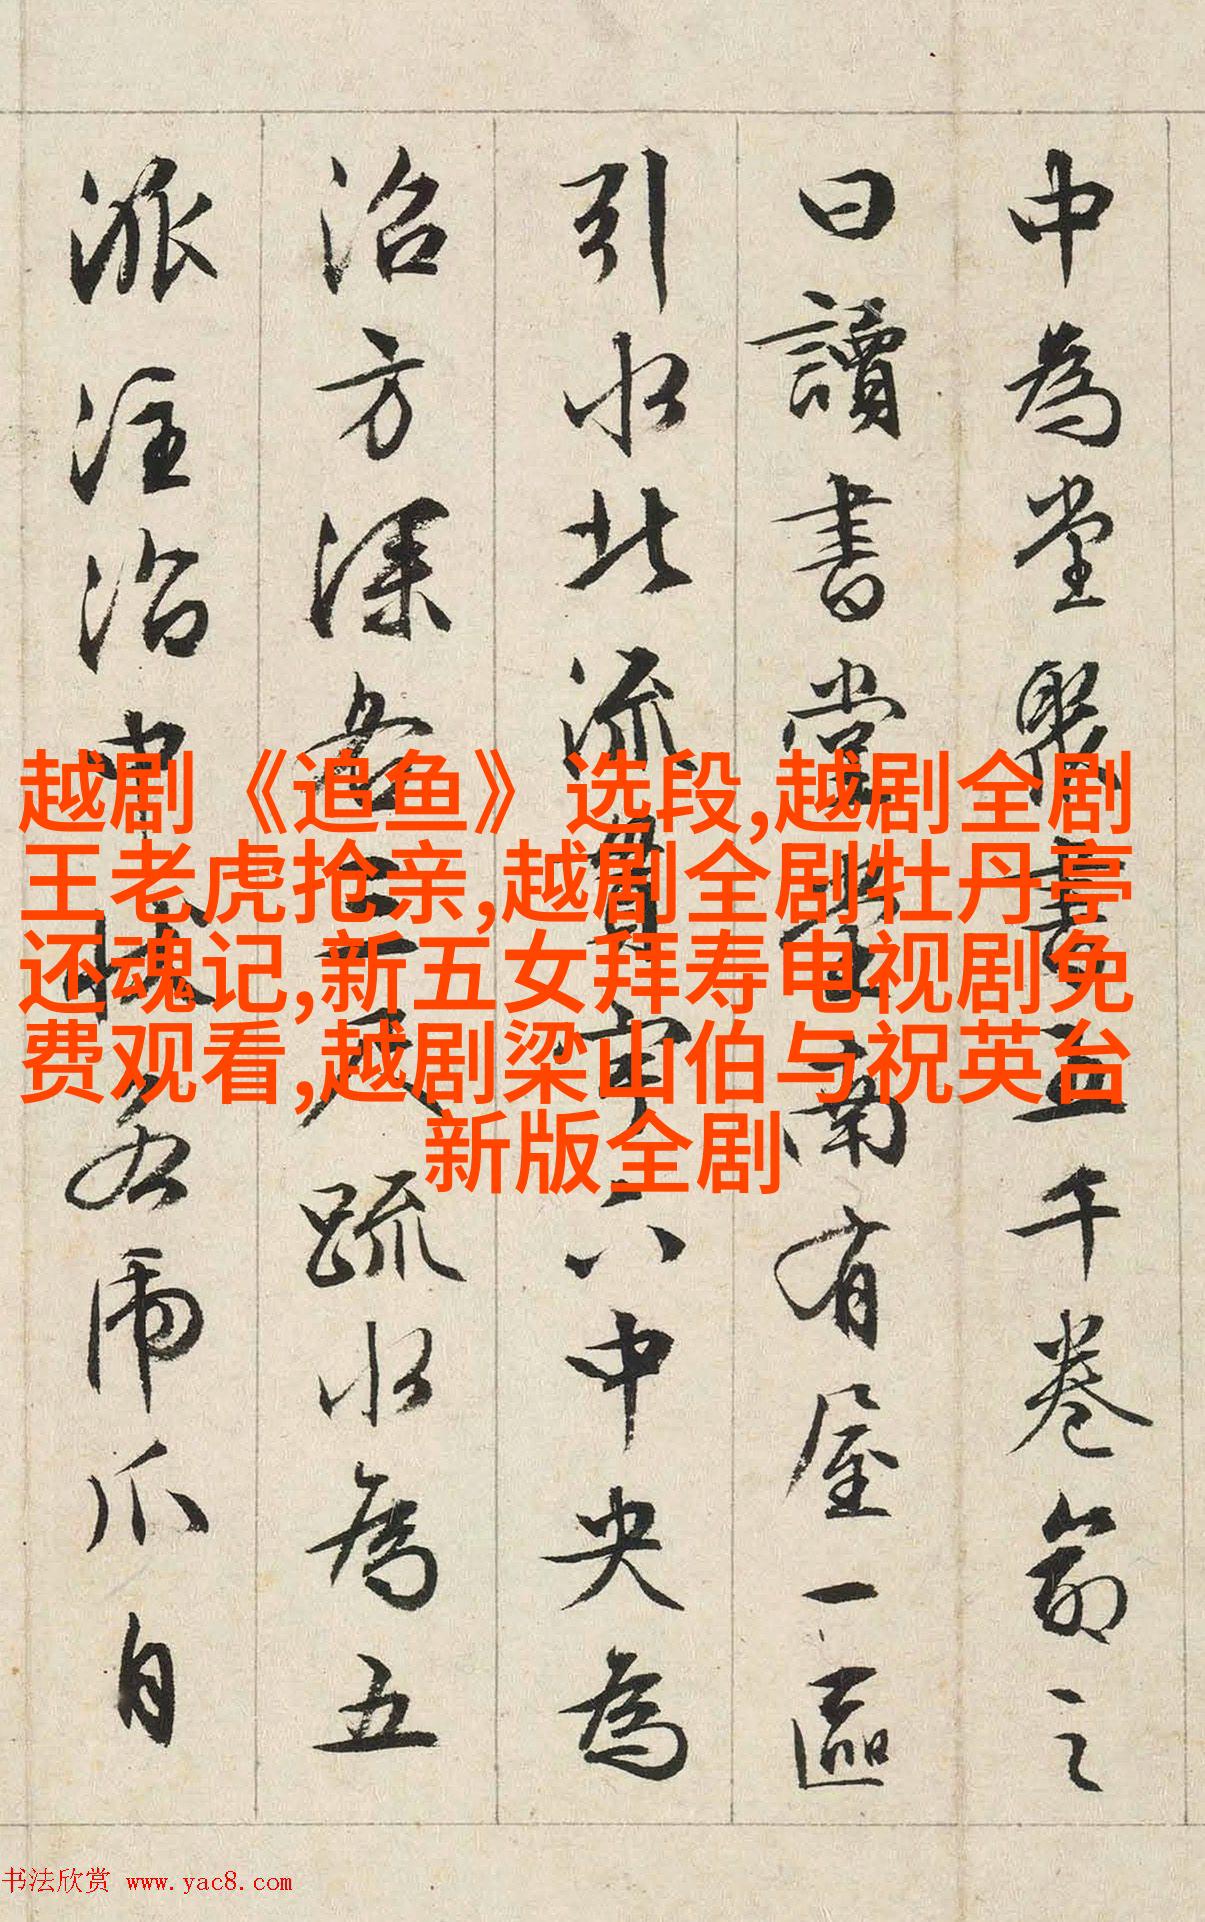 中為堂聚書五千卷命之
曰讀書堂堂南有屋一區
引水北流貫宇下中央為
沼方深各三尺疏水為五
派注沼中狀若虎爪自
越剧《追鱼》选段,越剧全剧
王老虎抢亲,越剧全剧牡丹亭
还魂记,新五女拜寿电视剧免
费观看,越剧梁山伯与祝英台
新版全剧
书法欣赏 www.yac8.com